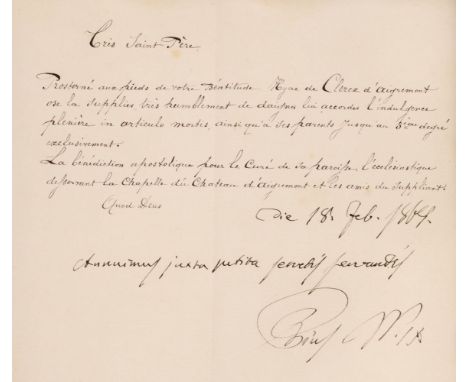 Très Saint Père,
Prosterné aux pieds de votre Béatitude de Clérez d'aigremont
ose la supplier très humblement de daigner lui accorder l'indulgence
plénière in articulo mortis, ainsi qu'à ses parents jusqu'au 3ème degré
exclusivement.
La bénédiction apostolique pour le Curé de sa paroisse, l'ecclésiastique
desservant la Chapelle du Chateau d'aigremont et les amis du Suppliant.
Quod Deus
Die 18. Feb. 1865.
Annuimus juxta petita servatis servandis
Pius P. IX